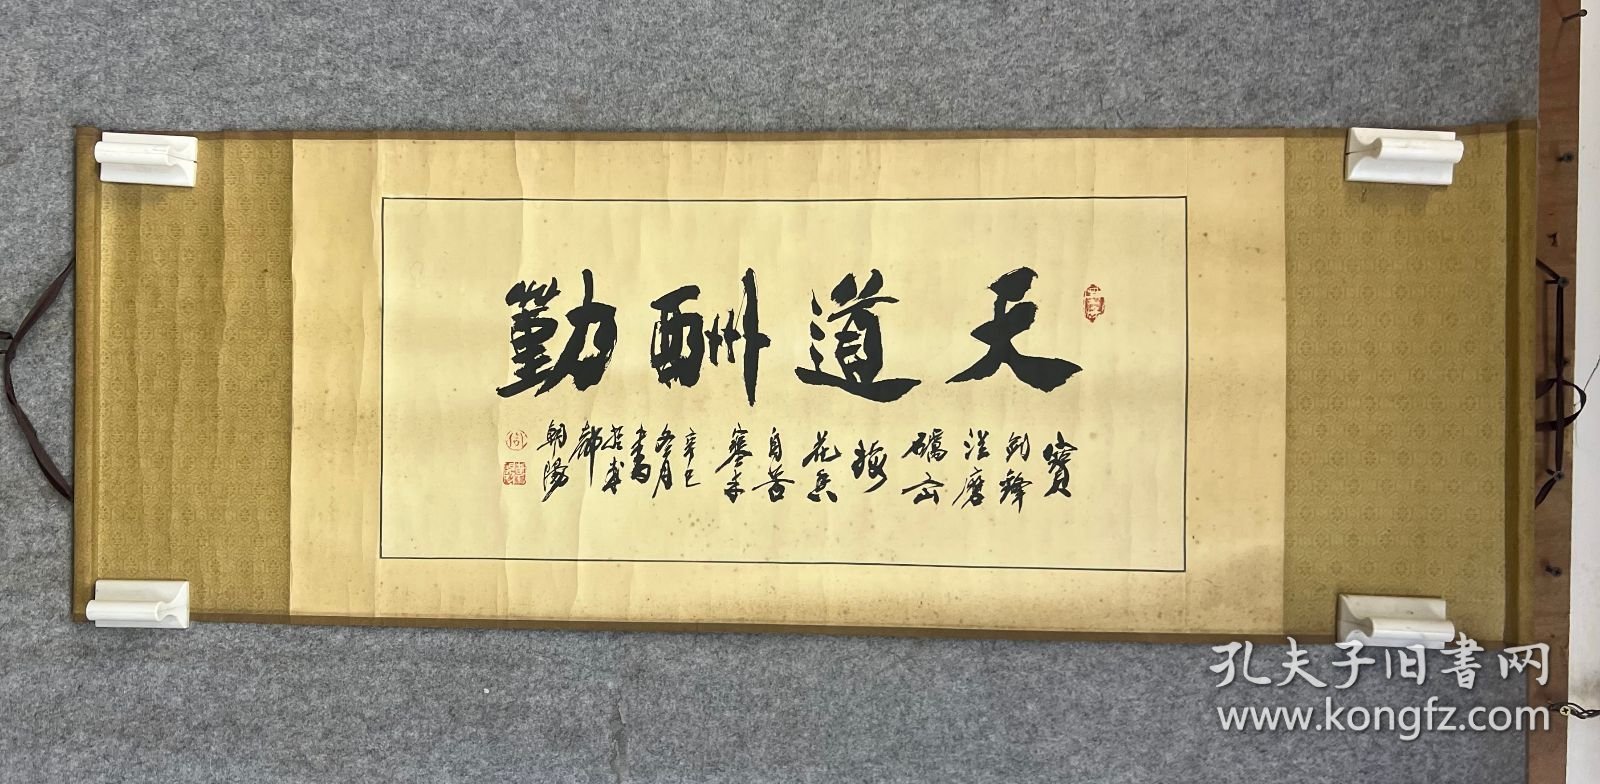 天道酬勤
寶
劍鋒
從磨
礪出
梅
花香
自苦
寒來
辛巳
冬月
書
於成
都
朝陽
孔夫子旧书网
www.kongfz.com